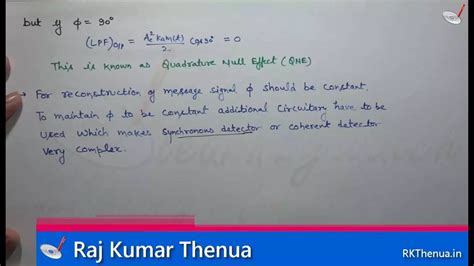 but if φ = 90°
(LPF)O/P = Ac² Ka m(t) / 2 Cos 90° = 0
This is known as Quadrature Null Effect (QNE)
→ For reconstruction of message signal φ should be constant.
To maintain φ to be constant additional Circuitary have to be
used which makes synchronous detector or coherent detector
very complex.
Raj Kumar Thenua
RKThenua.in